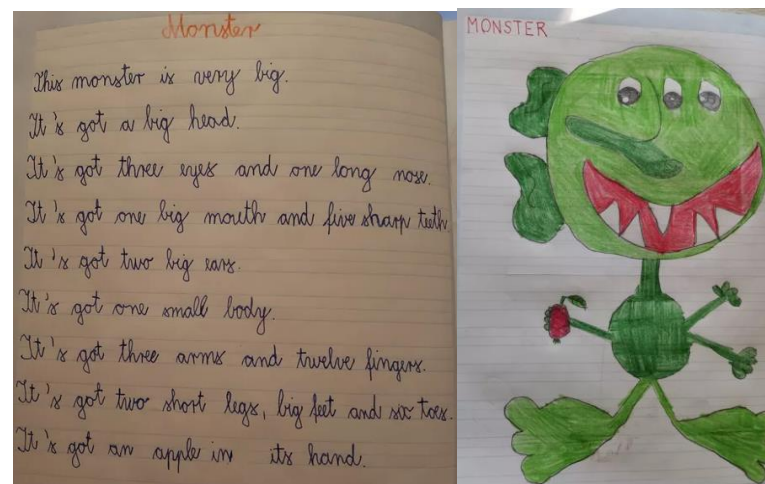 Monster
This monster is very big.
It's got a big head.
It's got three eyes and one long nose.
It's got one big mouth and five sharp teeth.
It's got two big ears.
It's got one small body.
It's got three arms and twelve fingers.
It's got two short legs, big feet and six toes.
It's got an apple in its hand.
MONSTER